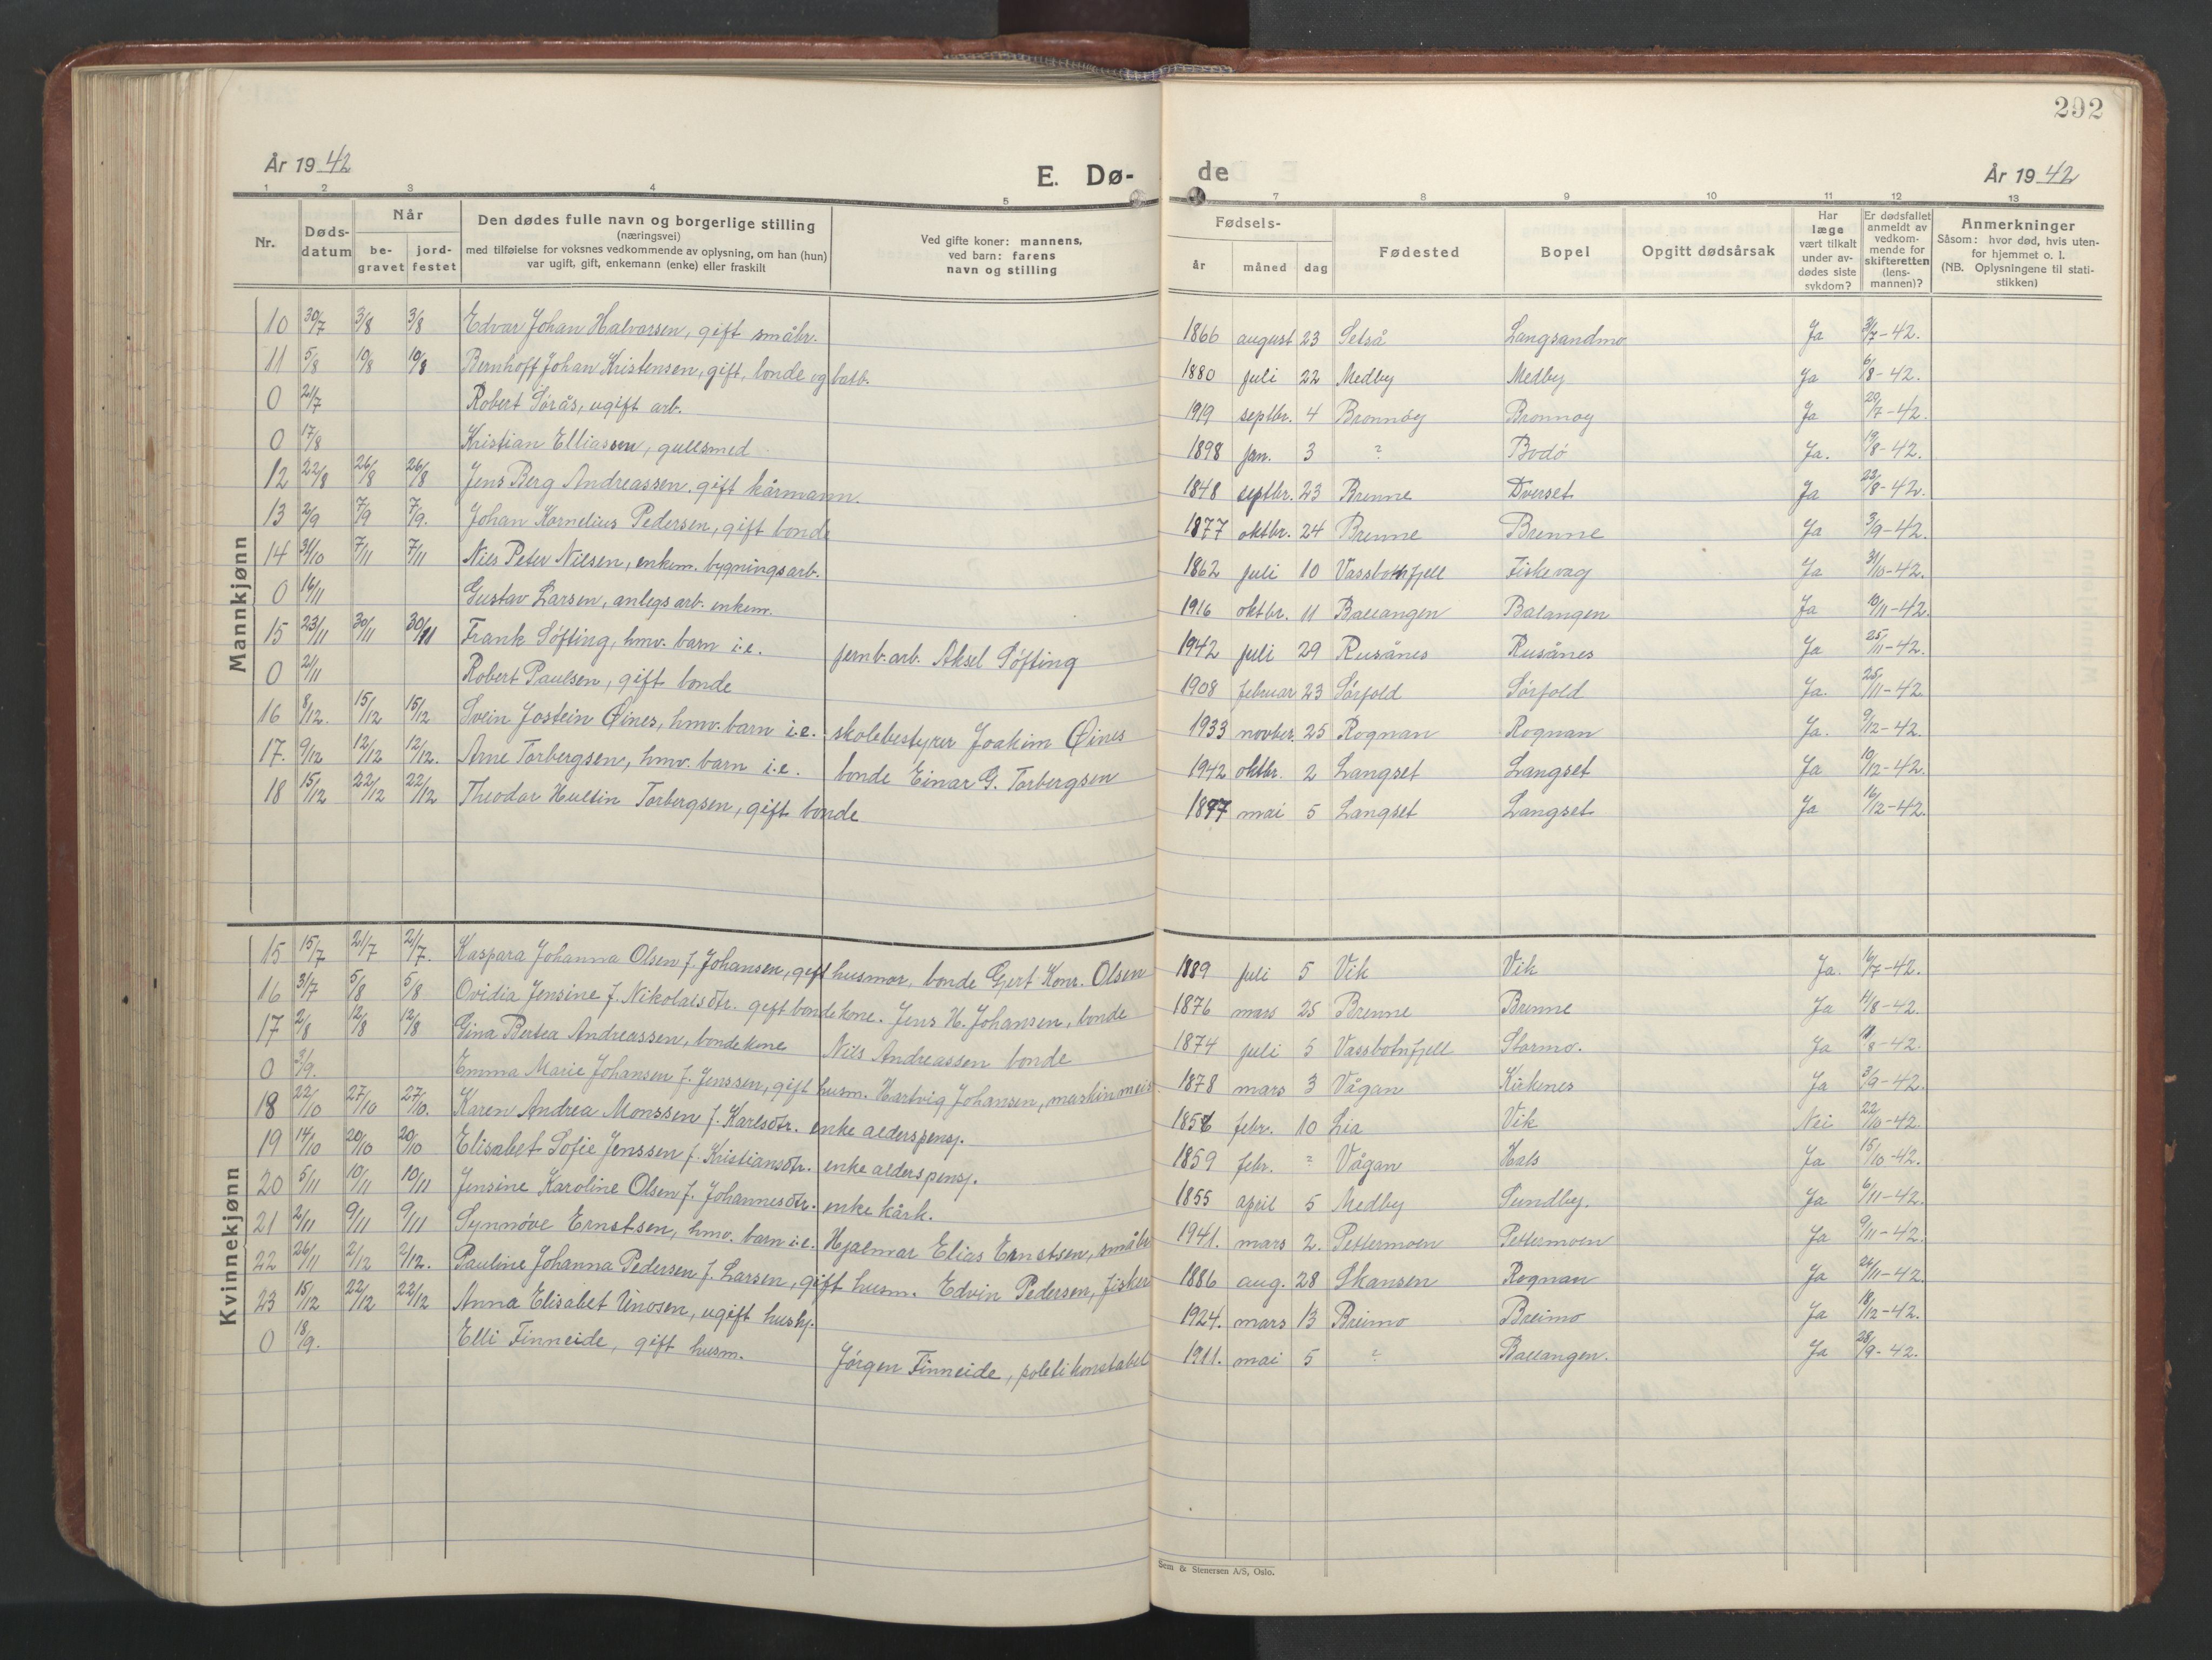 292
År 1942
E. Dø-
de
År 1942
1 2 3 4 5 7 8 9 10 11 12 13
Nr.
Døds-
datum
Når
be-
gravet
jord-
festet
Den dødes fulle navn og borgerlige stilling
(næringsvei)
med tilføielse for voksnes vedkommende av oplysning, om han (hun)
var ugift, gift, enkemann (enke) eller fraskilt
Ved gifte koner: mannens,
ved barn: farens
navn og stilling
Fødsels-
år måned dag
Fødested
Bopel
Opgitt dødsårsak
Har
læge
vært tilkalt
under av-
dødes siste
sykdom?
Er dødsfallet
anmeldt av
vedkom-
mende for
skifteretten
(lens-
mannen)?
Anmerkninger
Såsom: hvor død, hvis uten-
for hjemmet o. l.
(NB. Oplysningene til stati-
stikken)
Mannkjønn
10 30/7 3/8 3/8 Edvar Johan Halvorsen, gift småbr. 1866 august 23 Setså Langsandmo Ja 31/7-42.
11 5/8 10/8 10/8 Bernhoff Johan Kristensen, gift, bonde og 1880 juli 22 Medby Medby Ja 6/8-42.
0 21/7 Robert Sørås, ugift arb. 1919 septbr. 4 Brønnøy Brønnøy Ja 20/7-42.
0 17/8 Kristian Elliassen, gullsmed 1898 jan. 3 ? Bodø Ja. 19/8-42.
12 22/8 26/8 26/8 Jens Berg Andreassen, gift kårmann 1848 septbr. 23 Brenne Dverset Ja 23/8-42.
13 2/9 7/9 7/9. Johan Kornelius Pedersen, gift bonde 1877 oktbr. 24 Brenne Brenne Ja 3/9-42.
14 31/10 7/11 7/11 Nils Peter Nilsen, enkem. bygningsarb. 1862 juli 10 Vassbotnfjell Fiskevåg Ja 31/10-42.
0 16/11 Gustav Larsen, anlegsarb. enkem. 1916 oktbr. 11 Ballangen Balangen Ja 19/11-42.
15 23/11 30/11 30/11 Frank Søfting, hmv. barn i.e. jernb.arb. Aksel Søfting 1942 juli 29 Rusånes Rusånes Ja 25/11-42.
0 2/11 Robert Paulsen, gift bonde 1908 februar 23 Sørfold Sørfold Ja. 25/11-42
16 8/12. 15/12 15/12 Svein Jostein Øines, hmv. barn i.e. skolebestyrer Joakim Øines 1933 novber. 25 Rognan Rognan Ja. 9/12-42.
17. 9/12 12/12 12/12. Arne Torbergsen, hmv. barn i.e. bonde Einar G. Torbergsen 1942 oktbr. 2 Langset Langset Ja 10/12-42.
18 15/12 22/12 22/12 Theodor Hultin Torbergsen, gift bonde 1877 mai 5 Langset Langset Ja 16/12-42.
Kvinnekjønn
15 15/7 21/7 21/7. Kaspara Johanna Olsen f. Johansen, gift husmor, bonde Gert Konr. Olsen 1889 juli 5 Vik Vik Ja. 16/7-42.
16 31/7 5/8 5/8 Ovidia Jensine f. Nikolaisdtr. gift bondekone. Jens H. Johansen, bonde 1876 mars 25 Brenne Brenne Ja 11/8-42.
17 2/8 12/8 12/8 Gina Bertea Andreassen, bondekone Nils Andreassen bonde 1874 juli 5 Vassbotnfjell Starmo. Ja 11/8-42.
0 3/9. Emma Marie Johansen f. Jenssen, gift husm. Hartvig Johansen, maskinmeis 1878 mars 3 Vågan Kirkenes Ja 3/9-42.
18 22/10 27/10 27/10. Karen Andrea Monssen f. Karlsdtr. enke alderspensj. febr. 10 Lia Vik Nei 22/10-42.
19 14/10 20/10 20/10 Elisabet Sofie Jenssen f. Kristiansdtr. enke alderspensj. 1859 febr. ? Vågan Hals Ja 15/10-42.
20 5/11 10/11 10/11 Jensine Karoline Olsen f. Johannesdtr. enke kårk. 1855 april 5 Medby Sundby. Ja 6/11-42.
21 2/11 9/11 9/11 Synnøve Ernstsen, hmv. barn i.e. Hjalmar Elias Ernstsen, småbr 1941. mars 2. Pettermoen Pettermoen Ja 9/11-42.
22 26/11 2/12 2/12. Pauline Johanna Pedersen f. Larsen, gift husm. Edvin Pedersen, fisker 1886 aug. 28 Skansen Rognan Ja 26/11-42.
23 15/12 22/12 22/12 Anna Elisabet Unosen, ugift hushj. 1924. mars 13 Breimo Breimo Ja 18/12-42.
0 18/9. Elli Finneide, gift husm. Jørgen Finneide, politikonstabel 1911. mai 5 ? Ballangen. Ja 28/9-42.
Sem & Stenersen A/S, Oslo.